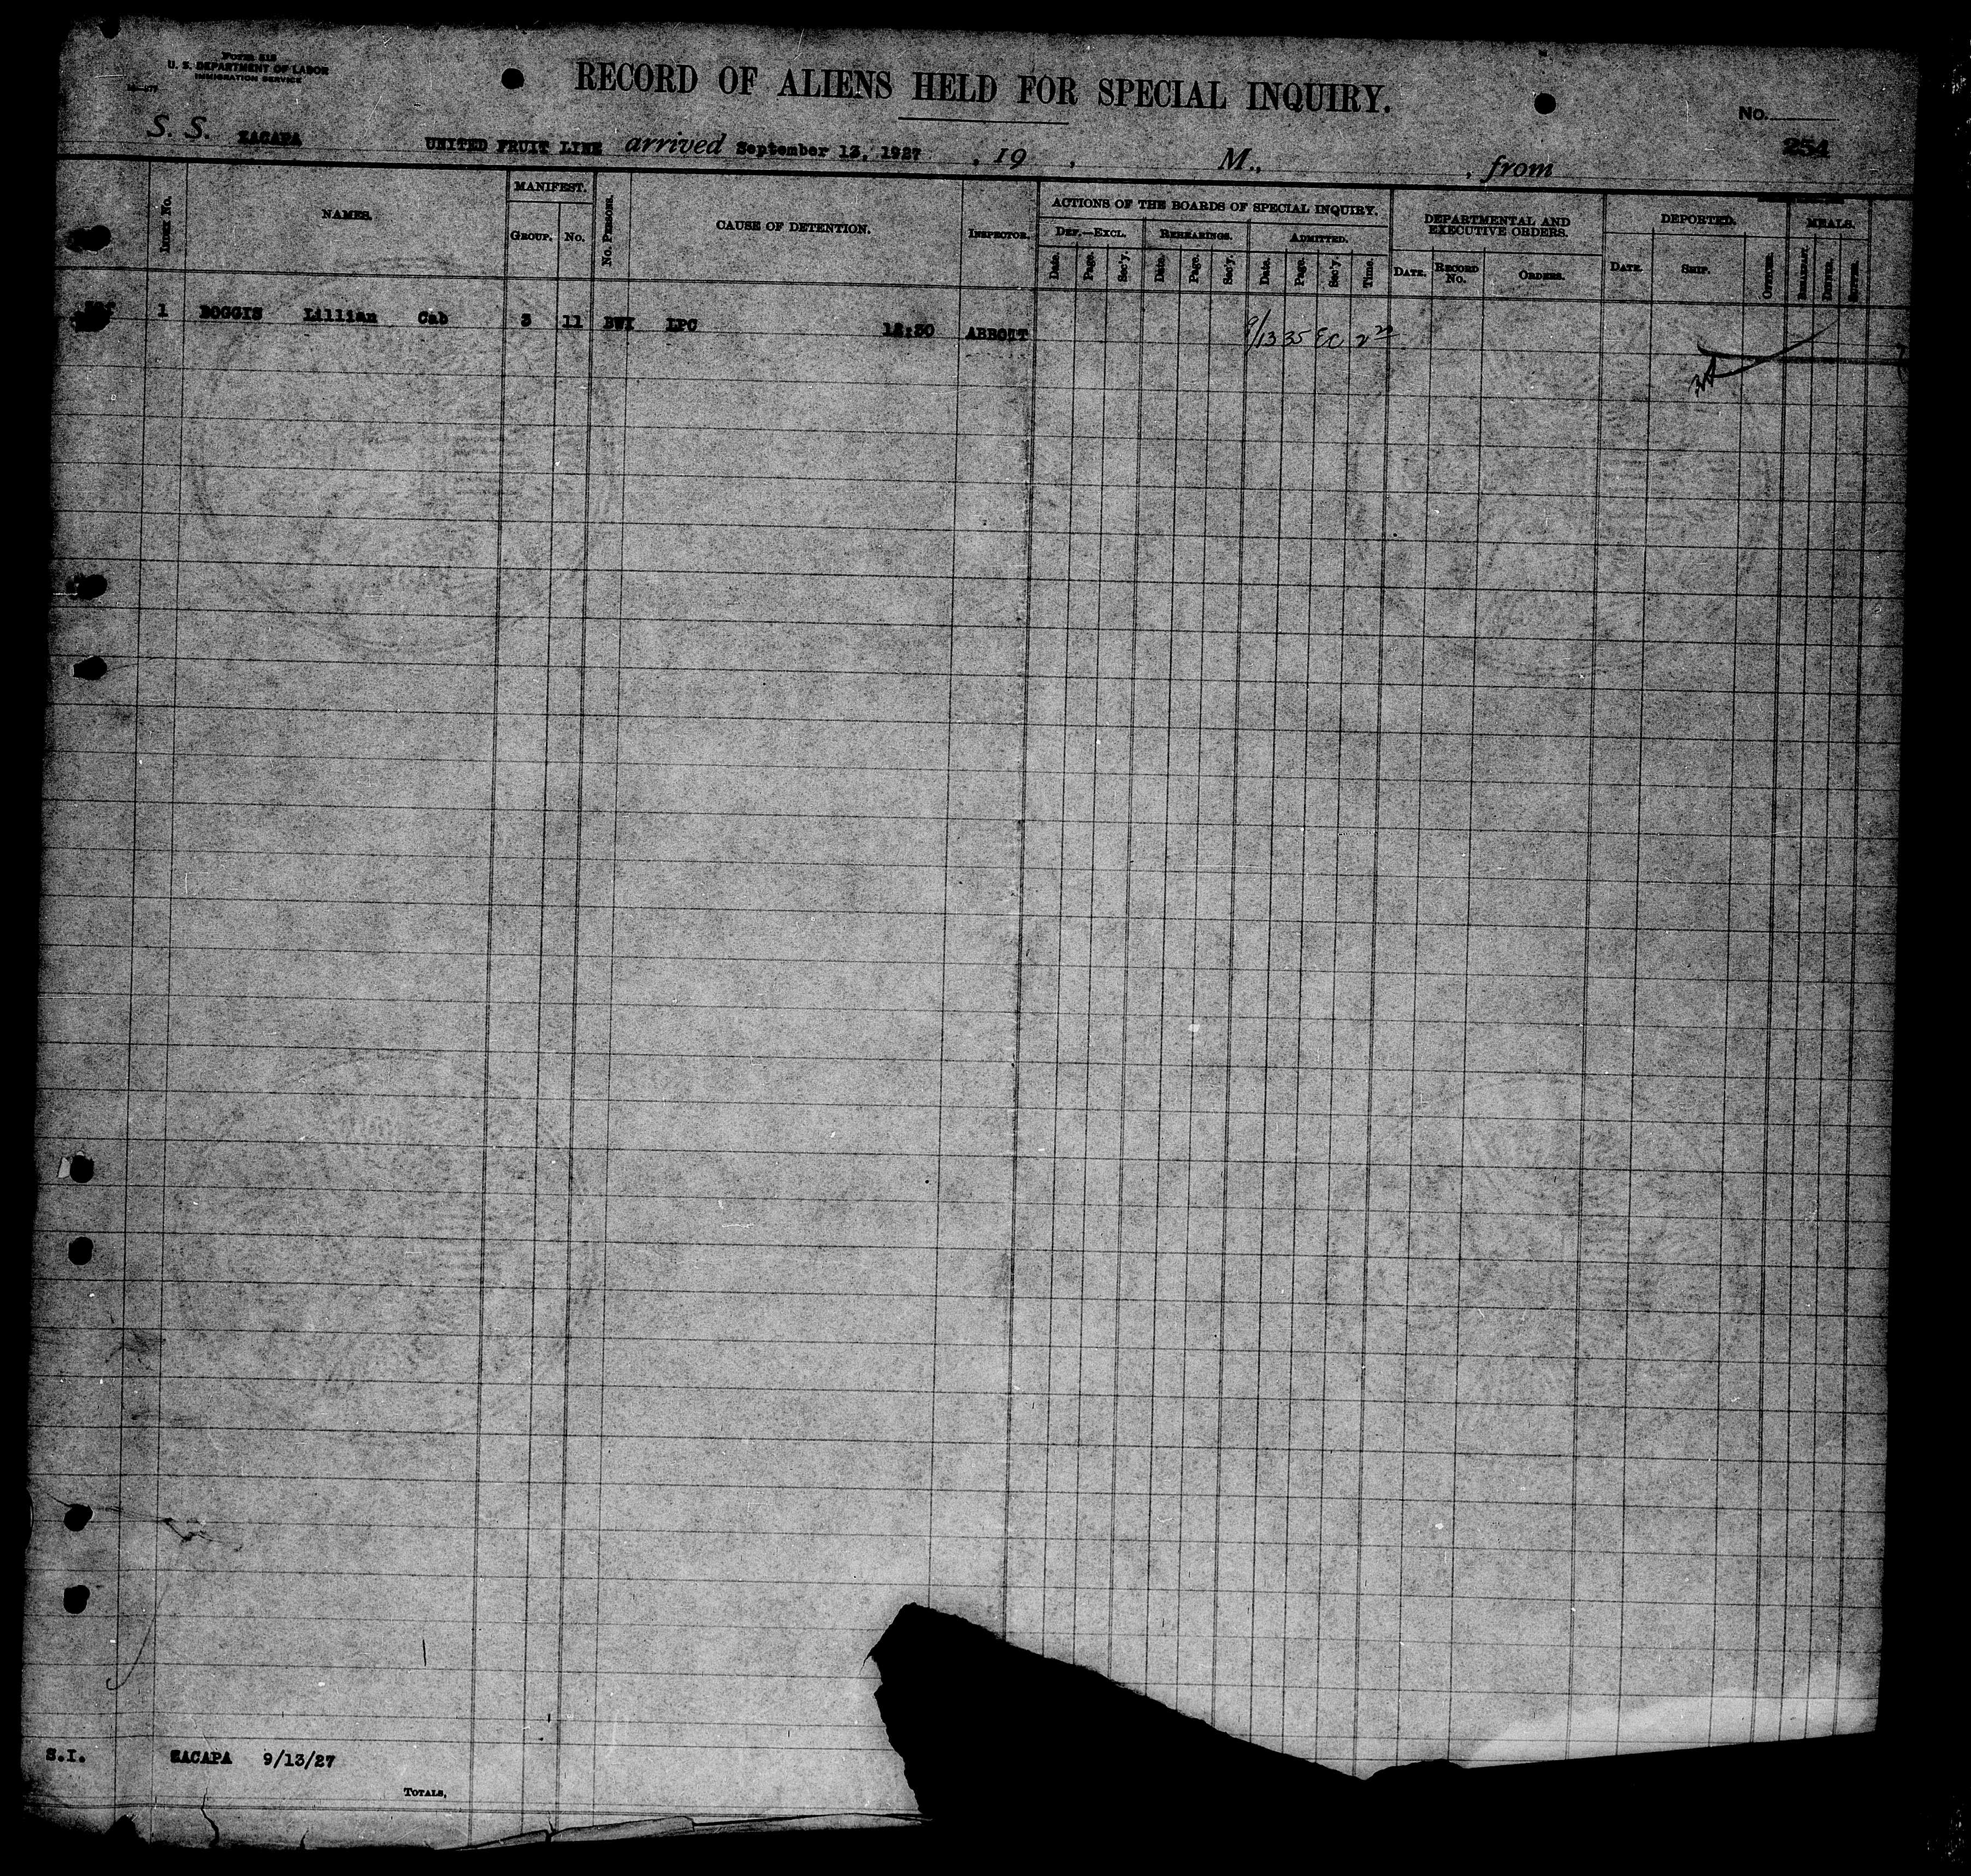 Form 518
U. S. DEPARTMENT OF LABOR
IMMIGRATION SERVICE
RECORD OF ALIENS HELD FOR SPECIAL INQUIRY.
No.
254
S. S. ZACAPA UNITED FRUIT LINE arrived September 13, 1927 , 19 , M., , from
INDEX No. NAMES. MANIFEST. GROUP. No. No. PERSONS. CAUSE OF DETENTION. INSPECTOR.
ACTIONS OF THE BOARDS OF SPECIAL INQUIRY.
DEF.—EXCL. REHEARINGS. ADMITTED.
Date. Page. Sec'y. Date. Page. Sec'y. Date. Page. Sec'y. Time.
DEPARTMENTAL AND
EXECUTIVE ORDERS.
DATE. RECORD No. ORDERS.
DEPORTED.
DATE. SHIP. OFFICER.
MEALS.
BREAKFAST. DINNER. SUPPER.
1 BOGGIS Lillian Cab 3 11 BWI LPC 12:30 ABBOTT 9/13 35 EC
S.I. ZACAPA 9/13/27
TOTALS,